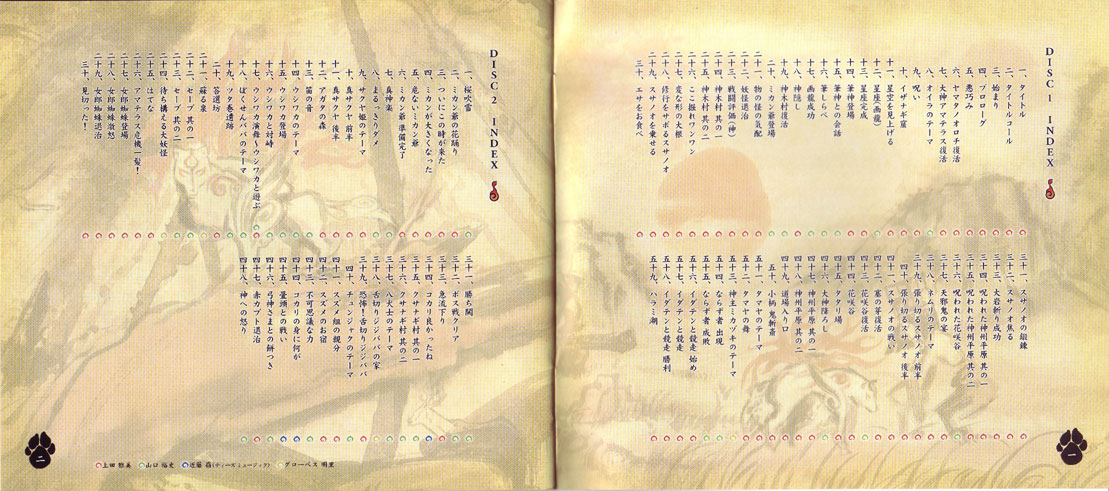 DISC 1 INDEX
一、タイトル
二、タイトルコール
三、始まり
四、プロローグ
五、悪巧み
六、ヤマタノオロチ復活
七、大神アマテラス復活
八、オイラのテーマ
九、呪い
十、イザナギ窟
十一、星空を見上げる
十二、星座(画龍)
十三、星座完成
十四、筆神登場
十五、筆神との会話
十六、筆しらべ
十七、画龍成功
十八、神隠し
十九、神木村復活
二十、ミカン爺登場
二十一、物の怪の気配
二十二、妖怪退治
二十三、戦闘評価(神)
二十四、神木村 其の一
二十五、神木村 其の二
二十六、ここ掘れワンワン
二十七、変な形の大根
二十八、修行をサボるスサノオ
二十九、スサノオを乗せる
三十、エサをお食べ
三十一、スサノオの鍛錬
三十二、スサノオ焦る
三十三、大岩斬り成功
三十四、呪われた神州平原 其の一
三十五、呪われた神州平原 其の二
三十六、呪われた花咲谷
三十七、天邪鬼の宴
三十八、ネムリのテーマ
三十九、張り切るスサノオ 前半
四十、張り切るスサノオ 後半
四十一、スサノオの戦い
四十二、塞の芽復活
四十三、花咲谷復活
四十四、花咲谷
四十五、タタリ場
四十六、大神降ろし
四十七、神州平原 其の一
四十八、神州平原 其の二
四十九、道場入り口
五十、小柄 鬼斬斎
五十一、タマヤのテーマ
五十二、タマヤの舞
五十三、神主ミカヅキのテーマ
五十四、ならず者 出現
五十五、ならず者 成敗
五十六、イダテンと競走 始め
五十七、イダテンと競走
五十八、イダテンと競走 勝利
五十九、ハラミ湖
一
DISC 2 INDEX
一、桜吹雪
二、ミカン爺の花踊り
三、ついにこの時が来た
四、ミカンが大きくなった
五、危ないミカン爺
六、ミカン爺 準備完了
七、真神楽
八、まるっきりダメ
九、サクヤ姫のテーマ
十、真サクヤ 前半
十一、真サクヤ 後半
十二、アガタの森
十三、笛の音
十四、ウシワカのテーマ
十五、ウシワカ登場
十六、ウシワカと対峙
十七、ウシワカ演舞〜ウシワカと遊ぶ
十八、ぼくせんババのテーマ
十九、ツタ巻遺跡
二十、答選坊
二十一、蘇る泉
二十二、セーブ 其の一
二十三、セーブ 其の二
二十四、待ち構える大妖怪
二十五、はてな
二十六、アマテラス危機一髪!
二十七、女郎蜘蛛登場
二十八、女郎蜘蛛激怒
二十九、女郎蜘蛛退治
三十、見切った!
三十一、勝ち鬨
三十二、ボス戦クリア
三十三、急流下り
三十四、コカリ良かったね
三十五、クサナギ村 其の一
三十六、クサナギ村 其の二
三十七、八犬士のテーマ
三十八、舌切りジジババの家
三十九、恐怖!舌切りジジババ
四十、チュンジャクのテーマ
四十一、スズメ組の親分
四十二、スズメのお宿
四十三、不可思議な力
四十四、コカリの身に何が
四十五、曇頭との戦い
四十六、弓神さまとの餅つき
四十七、赤カブト退治
四十八、神への怒り
上田 雅美 山口 裕史 近藤 嶺(ティーズミュージック) グローベス 明里
二